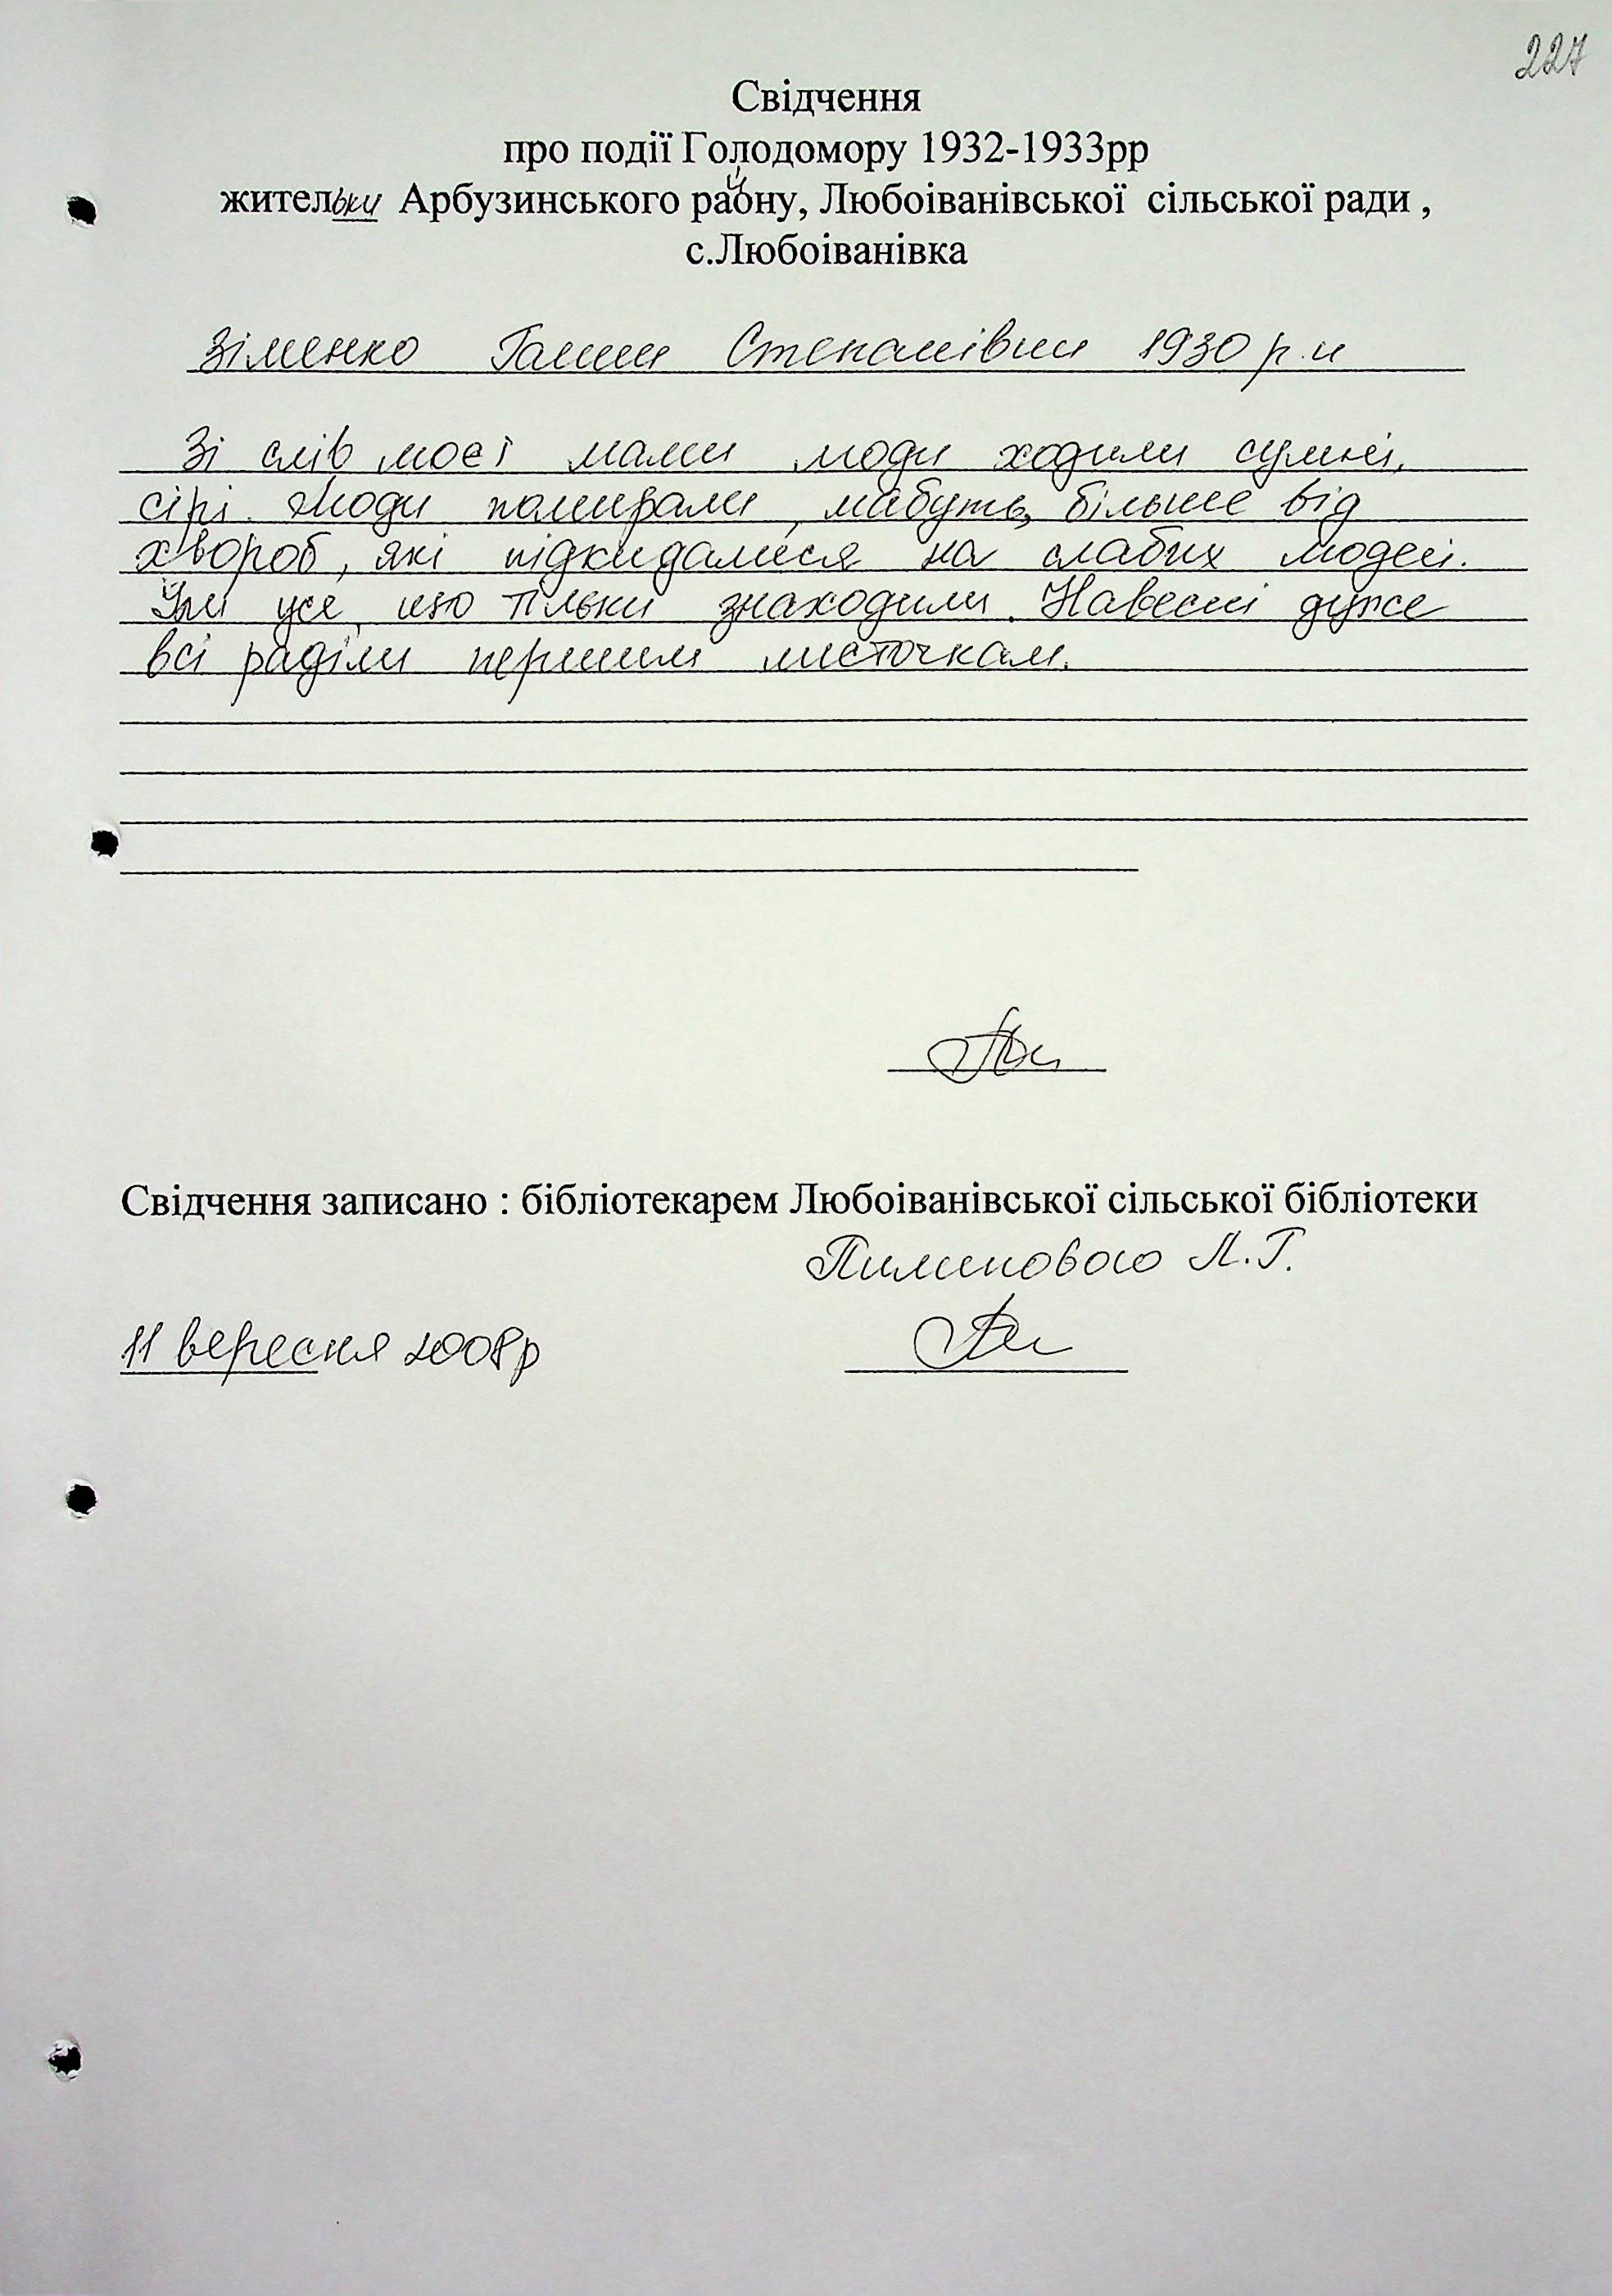 227
Свідчення
про події Голодомору 1932-1933рр
жительки Арбузинського району, Любоіванівської сільської ради ,
с.Любоіванівка
Зіменко Ганни Степанівни 1930 р.н
Зі слів моєї мами люди ходили сумні,
сірі. Люди помирали, мабуть, більше від
хвороб, які підкидалися на слабих людей.
Їли усе, що тільки знаходили. Навесні дуже
всі раділи першим листочкам.
Свідчення записано : бібліотекарем Любоіванівської сільської бібліотеки
Л.Г.
11 вересня 2008р